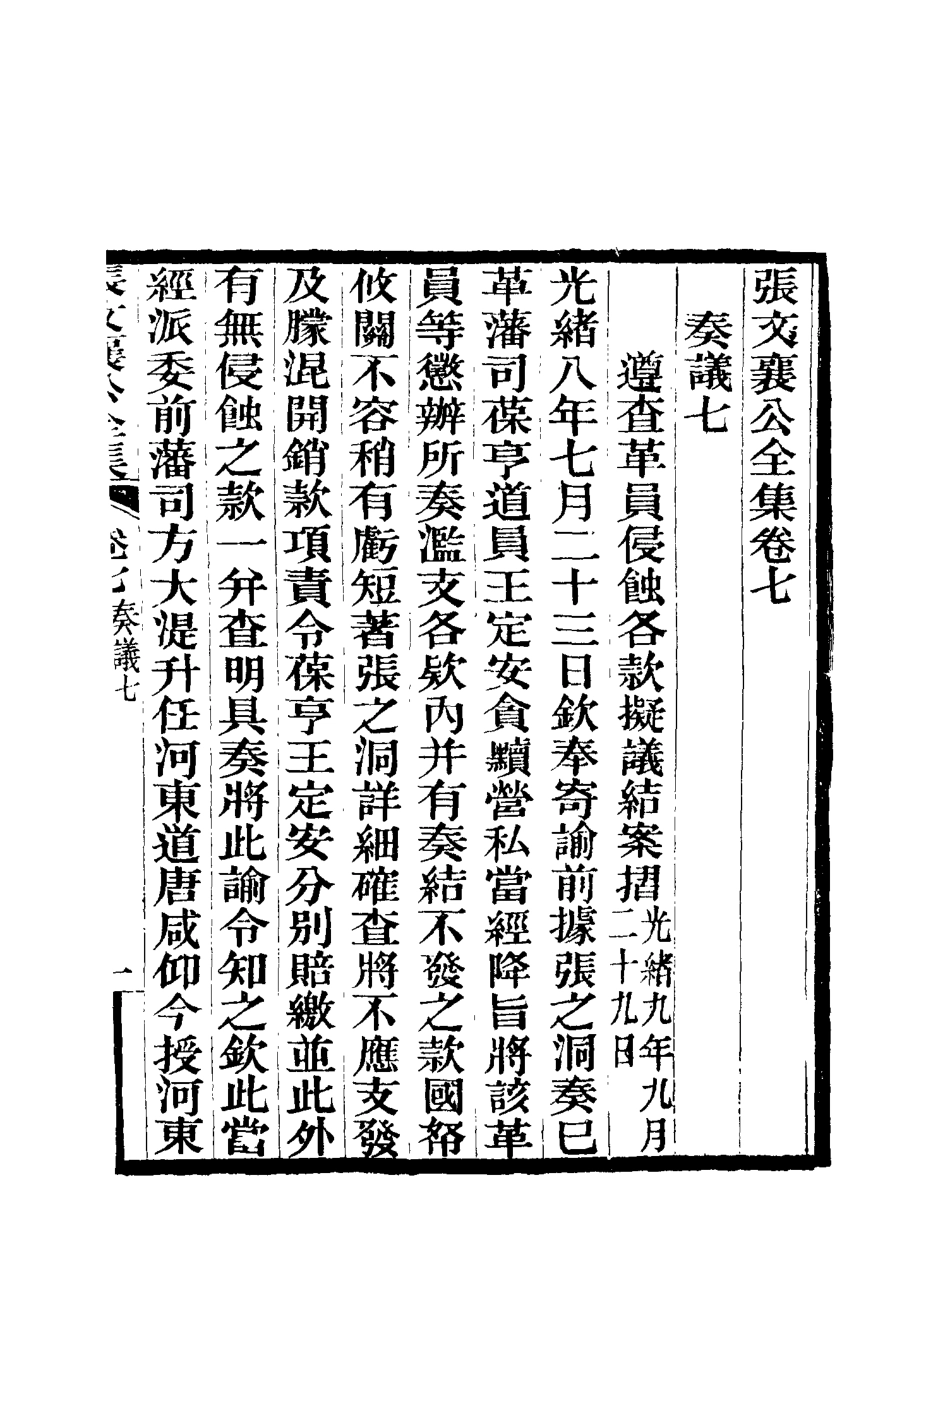 張文襄公全集卷七
奏議七
遵查革員侵蝕各款擬議結案摺光緒九年九月二十九日
光緒八年七月二十三日欽奉寄諭前據張之洞奏已
革藩司葆亨道員王定安貪黷營私當經降旨將該革
員等懲辦所奏濫支各欵內并有奏結不發之款國帑
攸關不容稍有虧短著張之洞詳細確查將不應支發
及朦混開銷款項責令葆亨王定安分別賠繳並此外
有無侵蝕之款一并查明具奏將此諭令知之欽此當
經派委前藩司方大湜升任河東道唐咸仰今授河東
張文襄公全集 卷七 奏議七 一